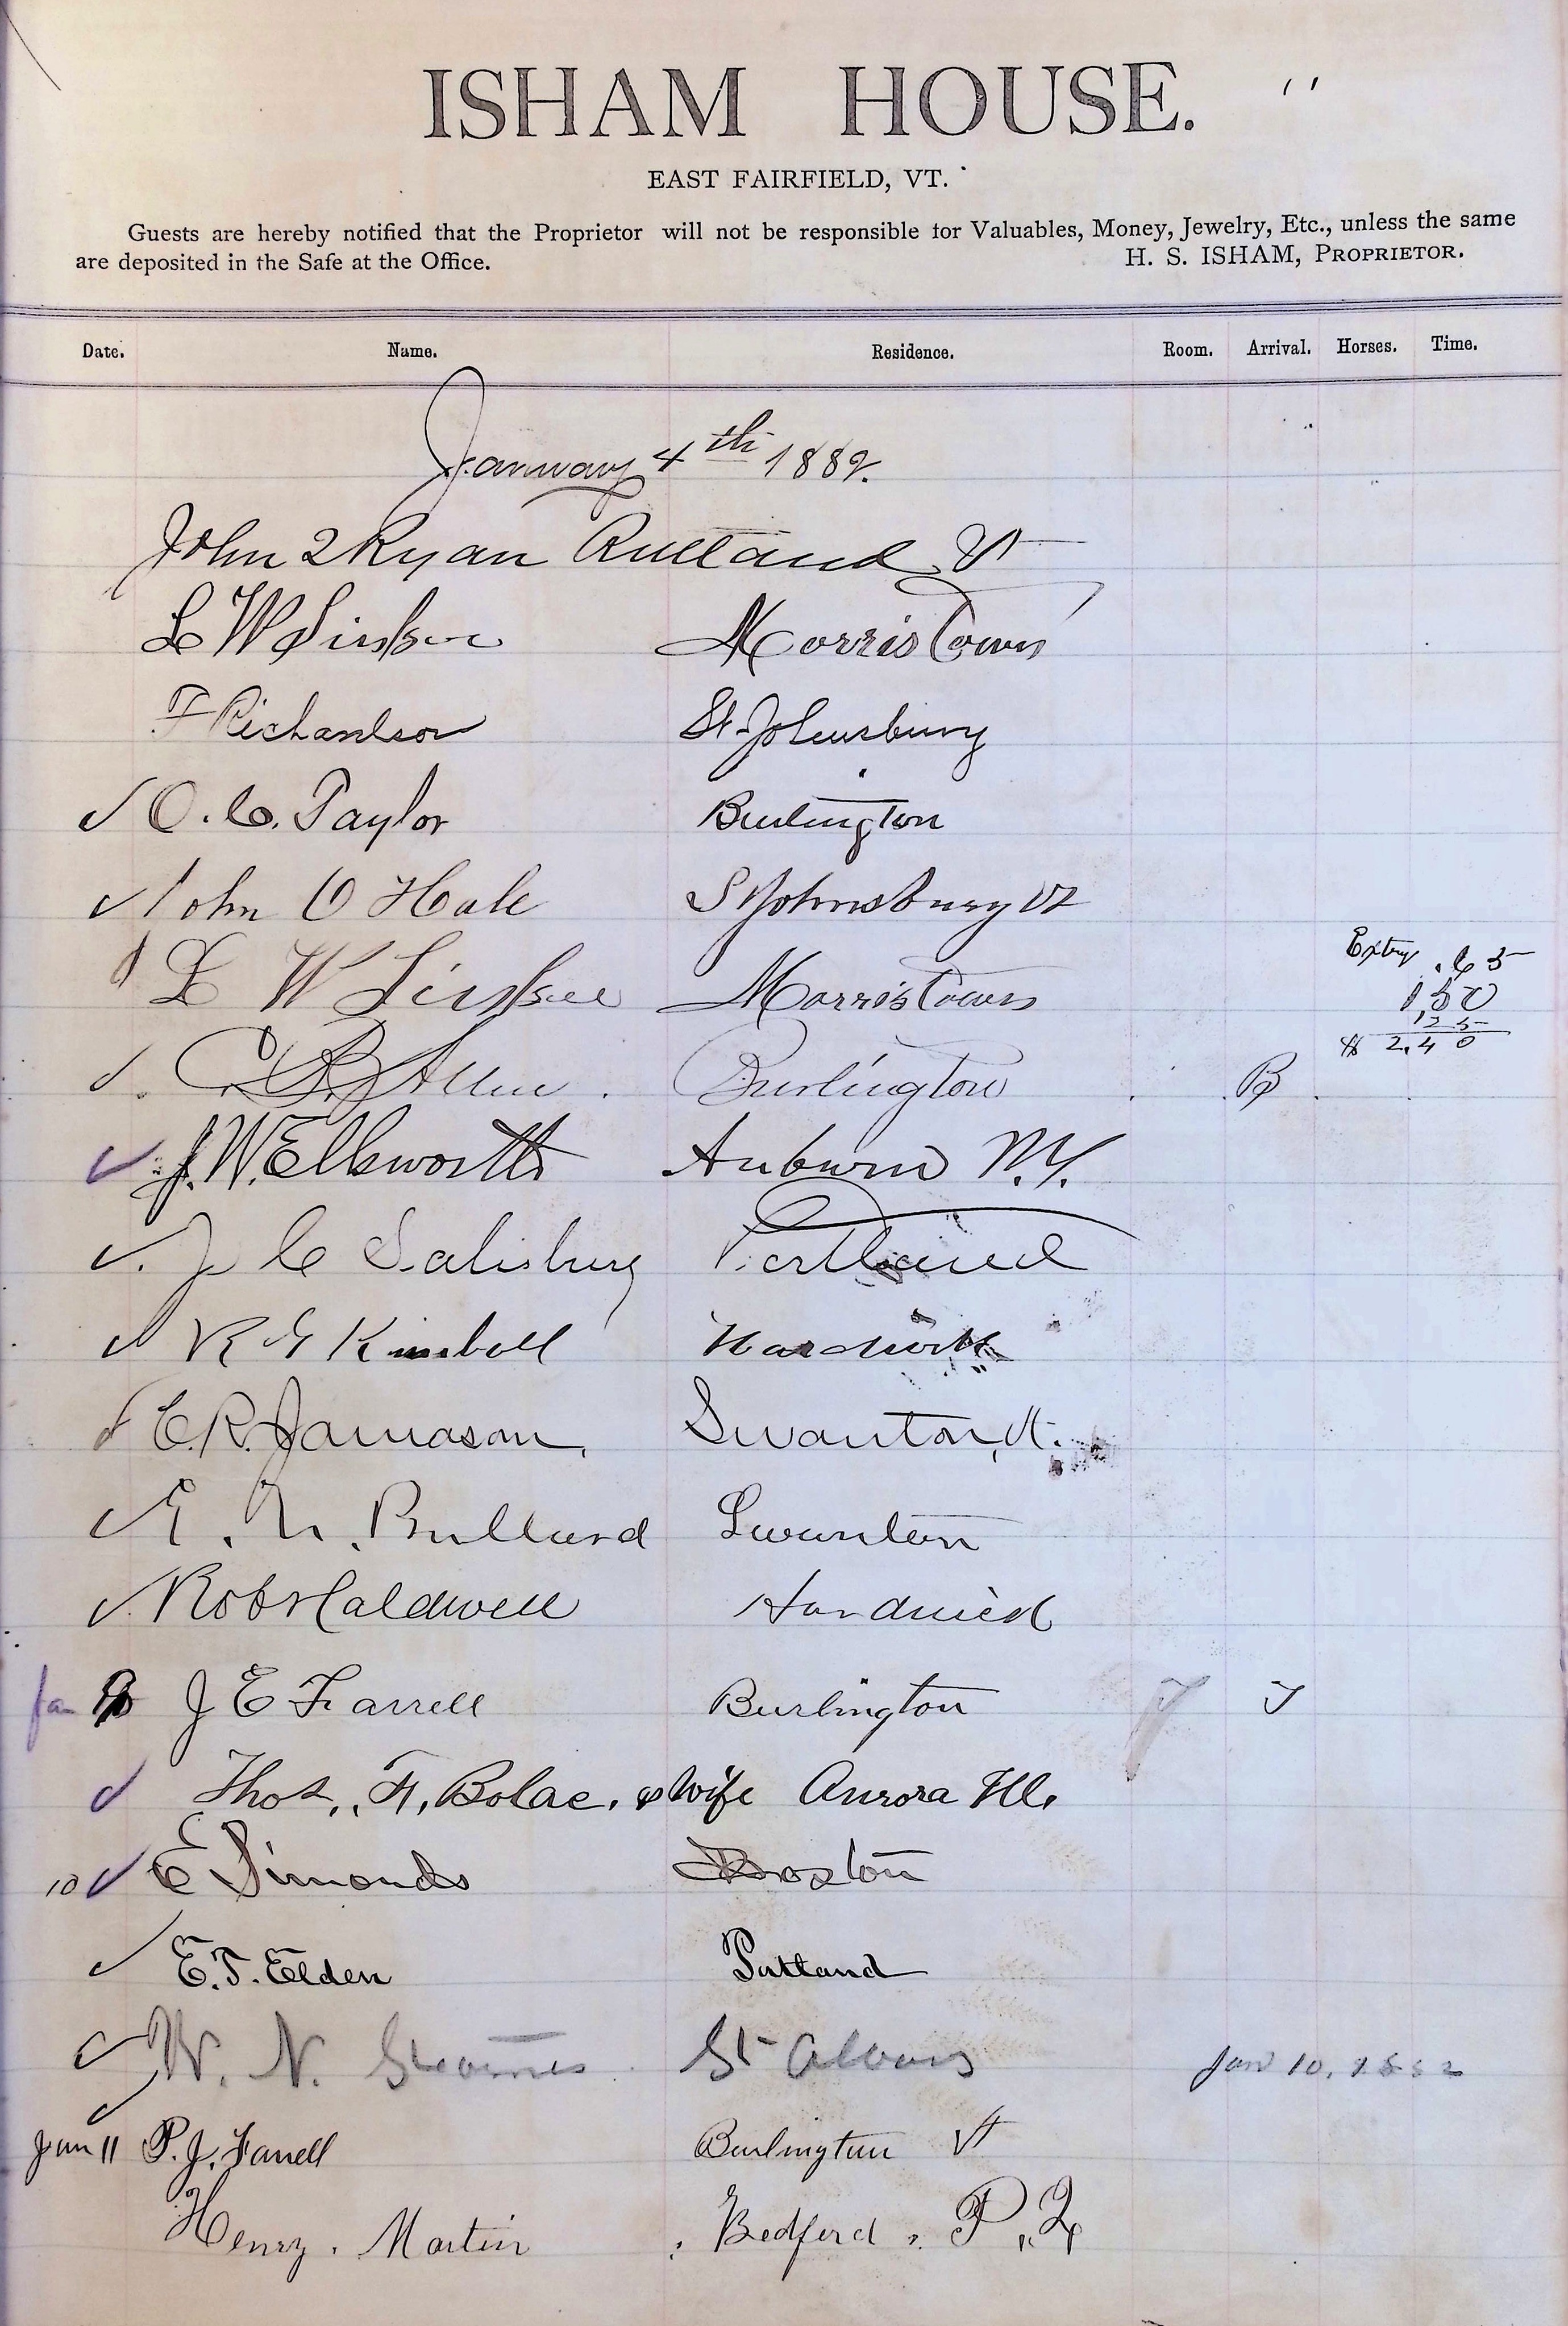 ISHAM HOUSE.
EAST FAIRFIELD, VT.
Guests are hereby notified that the Proprietor will not be responsible for Valuables, Money, Jewelry, Etc., unless the same
are deposited in the Safe at the Office. H. S. ISHAM, PROPRIETOR.
Date. Name. Residence. Room. Arrival. Horses. Time.
January 4th 1882.
John Ryan Rutland Vt
L W MorrisTown
F Richardson St. Johnsbury
O. C. Taylor Burlington
John O Hale St Johnsbury Vt
L W MorrisTown
Extry .65
1,50
,25
$ 2.40
Allen Burlington B
J. W. Ellsworth Auburn N.Y.
J C Salisbury Portland
R G Kimball Hardwick
C. R. Jamason, Swanton, Vt.
E. N. Bullard Swanton
Robt Caldwell Hardwick
Jan J E Farrell Burlington
Thos. F. Bolac. & Wife Aurora Ill.
10 E Simonds Boston
E. T. Elden
W. N. Stearnes St Albans Jan 10, 1882
Jan 11 P. J. Farrell Burlington Vt
Henry Martin Bedford P. Q